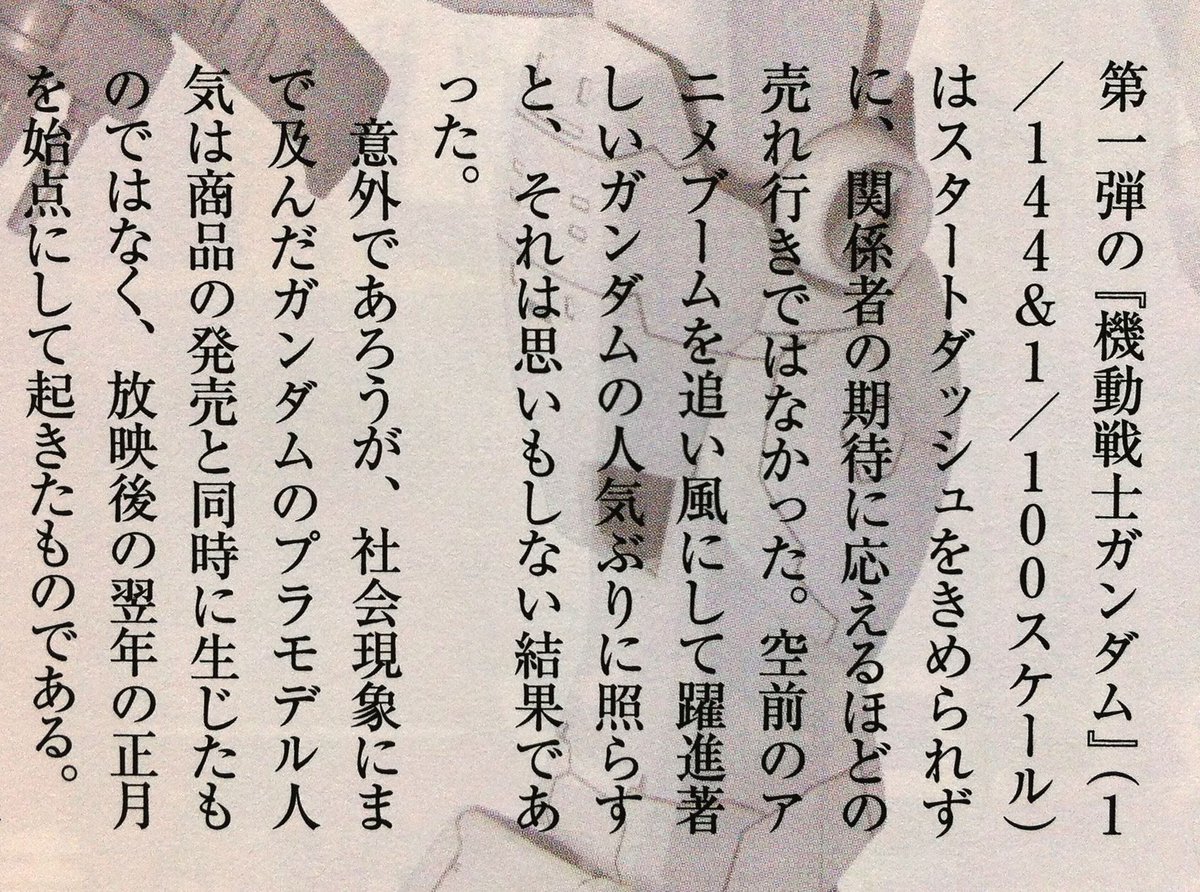 第一弾の『機動戦士ガンダム』(1
/144&1/100スケール)
はスタートダッシュをきめられず
に、関係者の期待に応えるほどの
売れ行きではなかった。空前のア
ニメブームを追い風にして躍進著
しいガンダムの人気ぶりに照らす
と、それは思いもしない結果であ
った。
　意外であろうが、社会現象にま
で及んだガンダムのプラモデル人
気は商品の発売と同時に生じたも
のではなく、放映後の翌年の正月
を始点にして起きたものである。